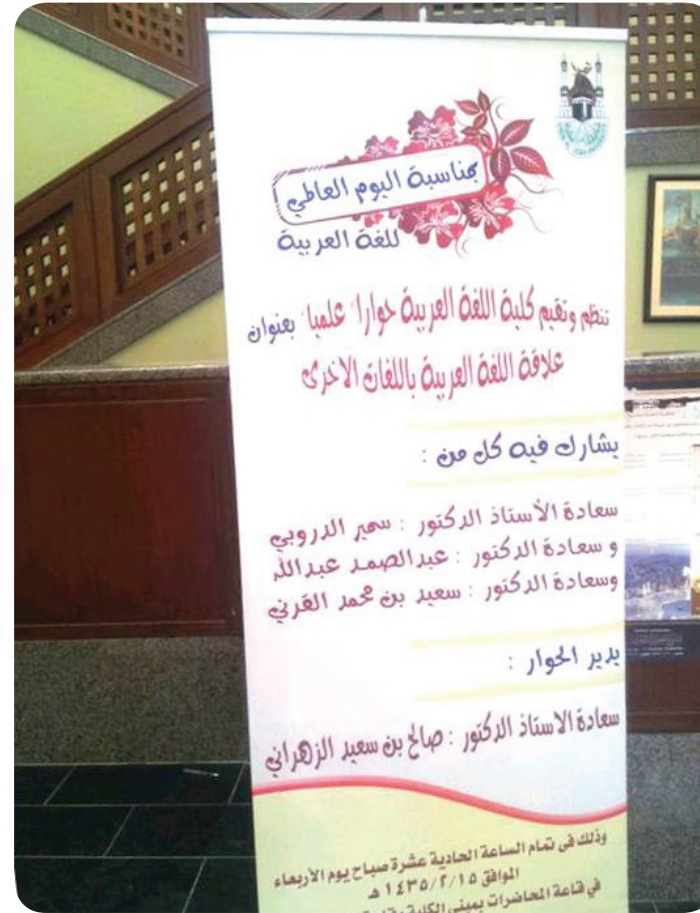 بمناسبة اليوم العالمي
للغة العربية
تنظم وتقيم كلية اللغة العربية حواراً علمياً بعنوان
علاقة اللغة العربية باللغات الاخرى
يشارك فيه كل من :
سعادة الأستاذ الدكتور : سمير الدروبي
و سعادة الدكتور : عبدالصمد عبدالله
وسعادة الدكتور : سعيد بن محمد القرني
يدير الحوار :
سعادة الاستاذ الدكتور : صالح بن سعيد الزهراني
وذلك في تمام الساعة الحادية عشرة صباح يوم الأربعاء
الموافق ١٤٣٥/٢/١٥ هـ
في قاعة المحاضرات بمبنى الكلية